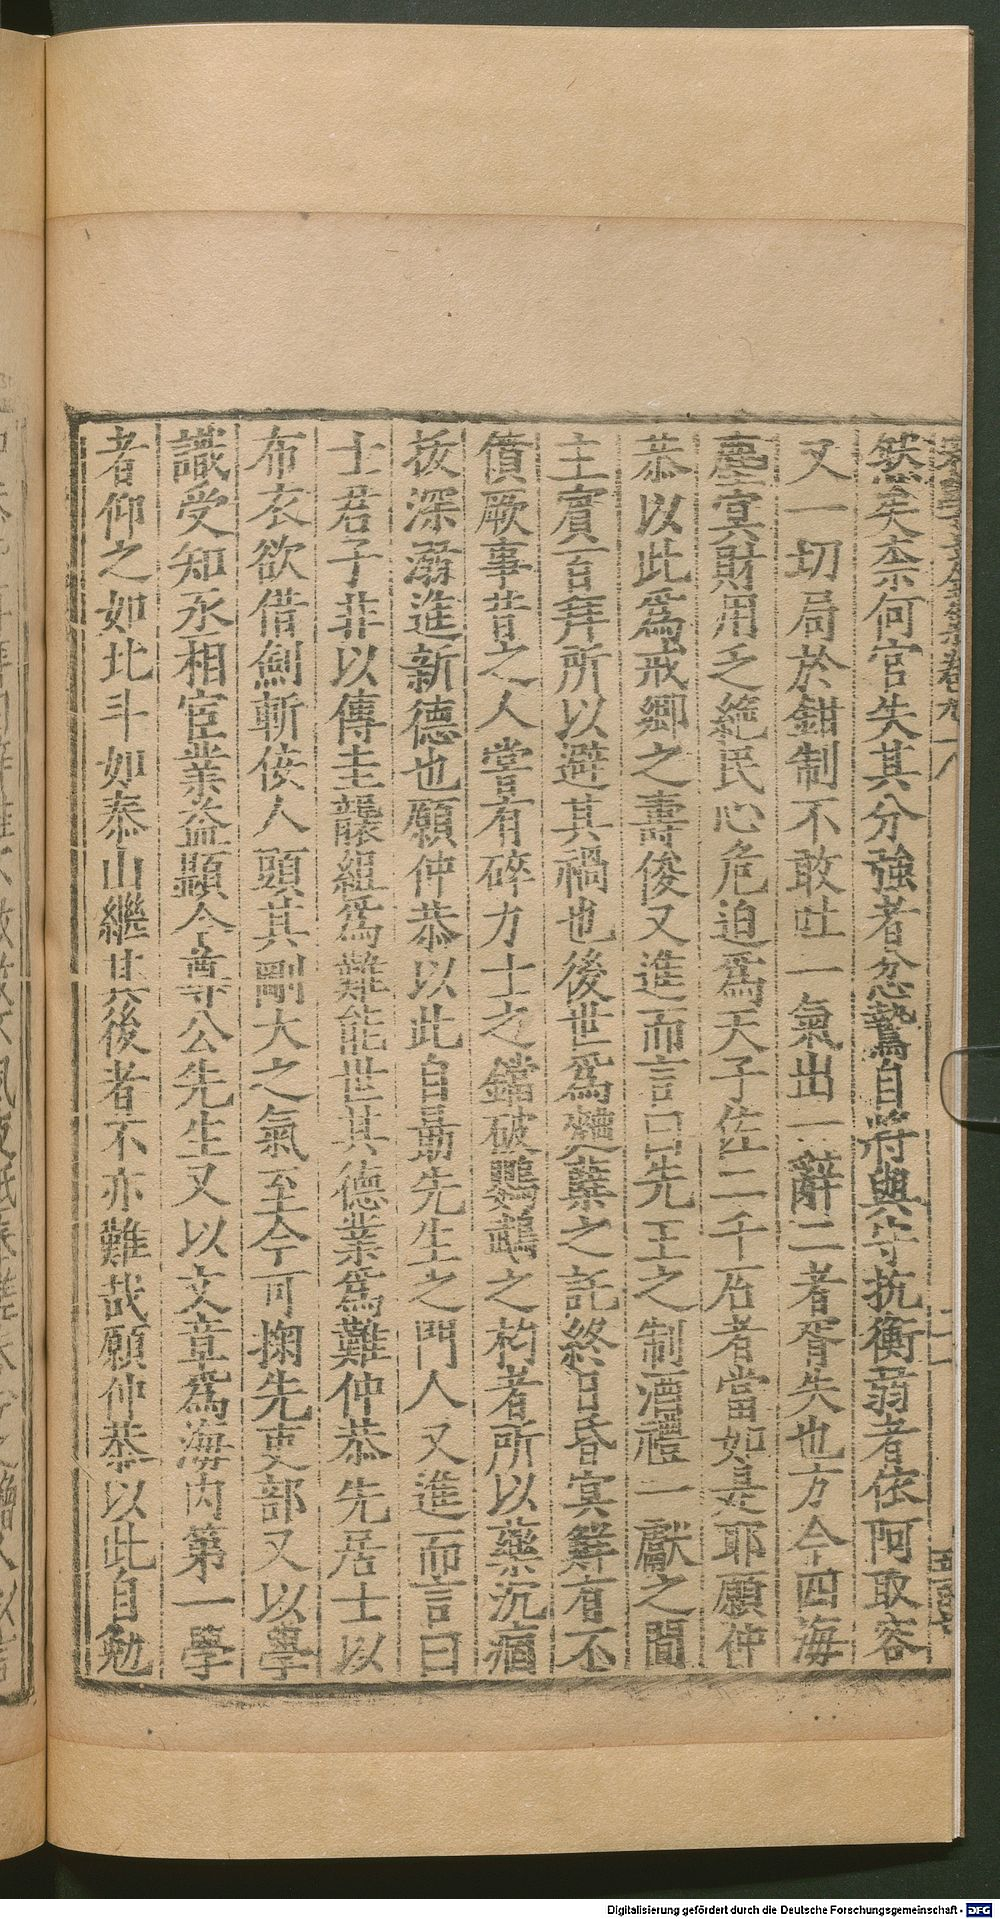 然矣柰何官失其分強者忿鷙自將與守抗衡弱者依阿取容
又一切局於鉗制不敢吐一氣出一辭二者胥失也方今四海
塵寞財用乏絶民心危迫爲天子佐二千石者當如是耶願仲
恭以此爲戒鄉之壽俊又進而言曰先王之制酒禮一獻之間
主賔百拜所以避其禍也後世爲麯糵之託終日昏㝠鮮有不
僨厥事昔之人嘗有碎力士之鐺破鸚鵡之杓者所以藥沉痼
拔深溺進新德也願仲恭以此自勗先生之門人又進而言曰
士君子非以傳圭襲組爲難能世其德業爲難仲恭先居士以
布衣欲借劍斬佞人頭其剛大之氣至今可掬先吏部又以學
識受知丞相宦業益顯今尊公先生又以文章爲海内第一學
者仰之如北斗如泰山繼其後者不亦難哉願仲恭以此自勉
Digitalisierung gefördert durch die Deutsche Forschungsgemeinschaft - DFG